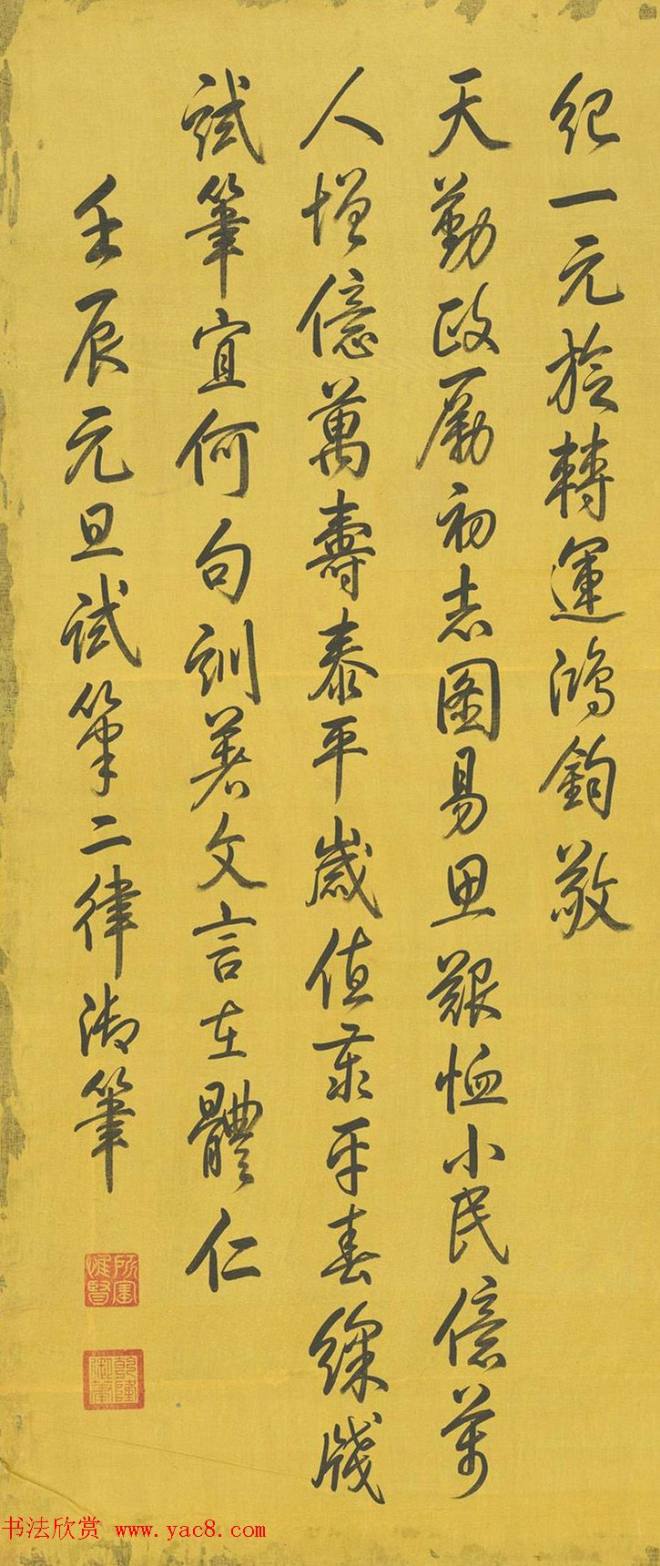 紀一元於轉運鴻鈞敬
天勤政厲初志圖易思艱恤小民億萬
人增億萬壽泰平歲值泰平春綵牋
試筆宜何句訓著文言在體仁
壬辰元旦試筆二律御筆
所寶惟賢
乾隆御筆
书法欣赏 www.yac8.com